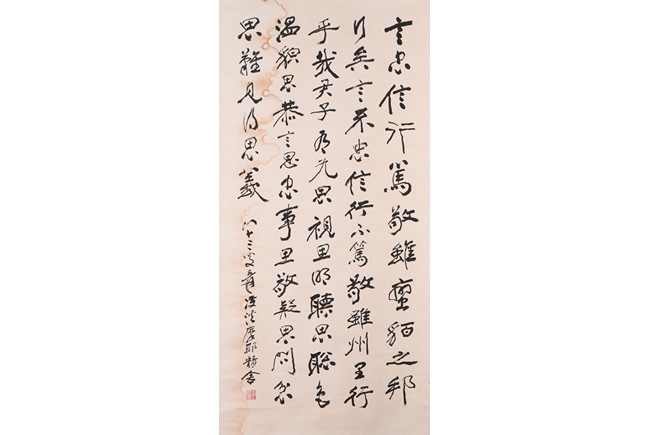 言忠信行篤敬雖蠻貊之邦
行矣言不忠信行不篤敬雖州里行
乎哉君子有九思視思明聽思聰色
溫貌思恭言思忠事思敬疑思問忿
思難見得思義
八十三叟爰摩耶精舍